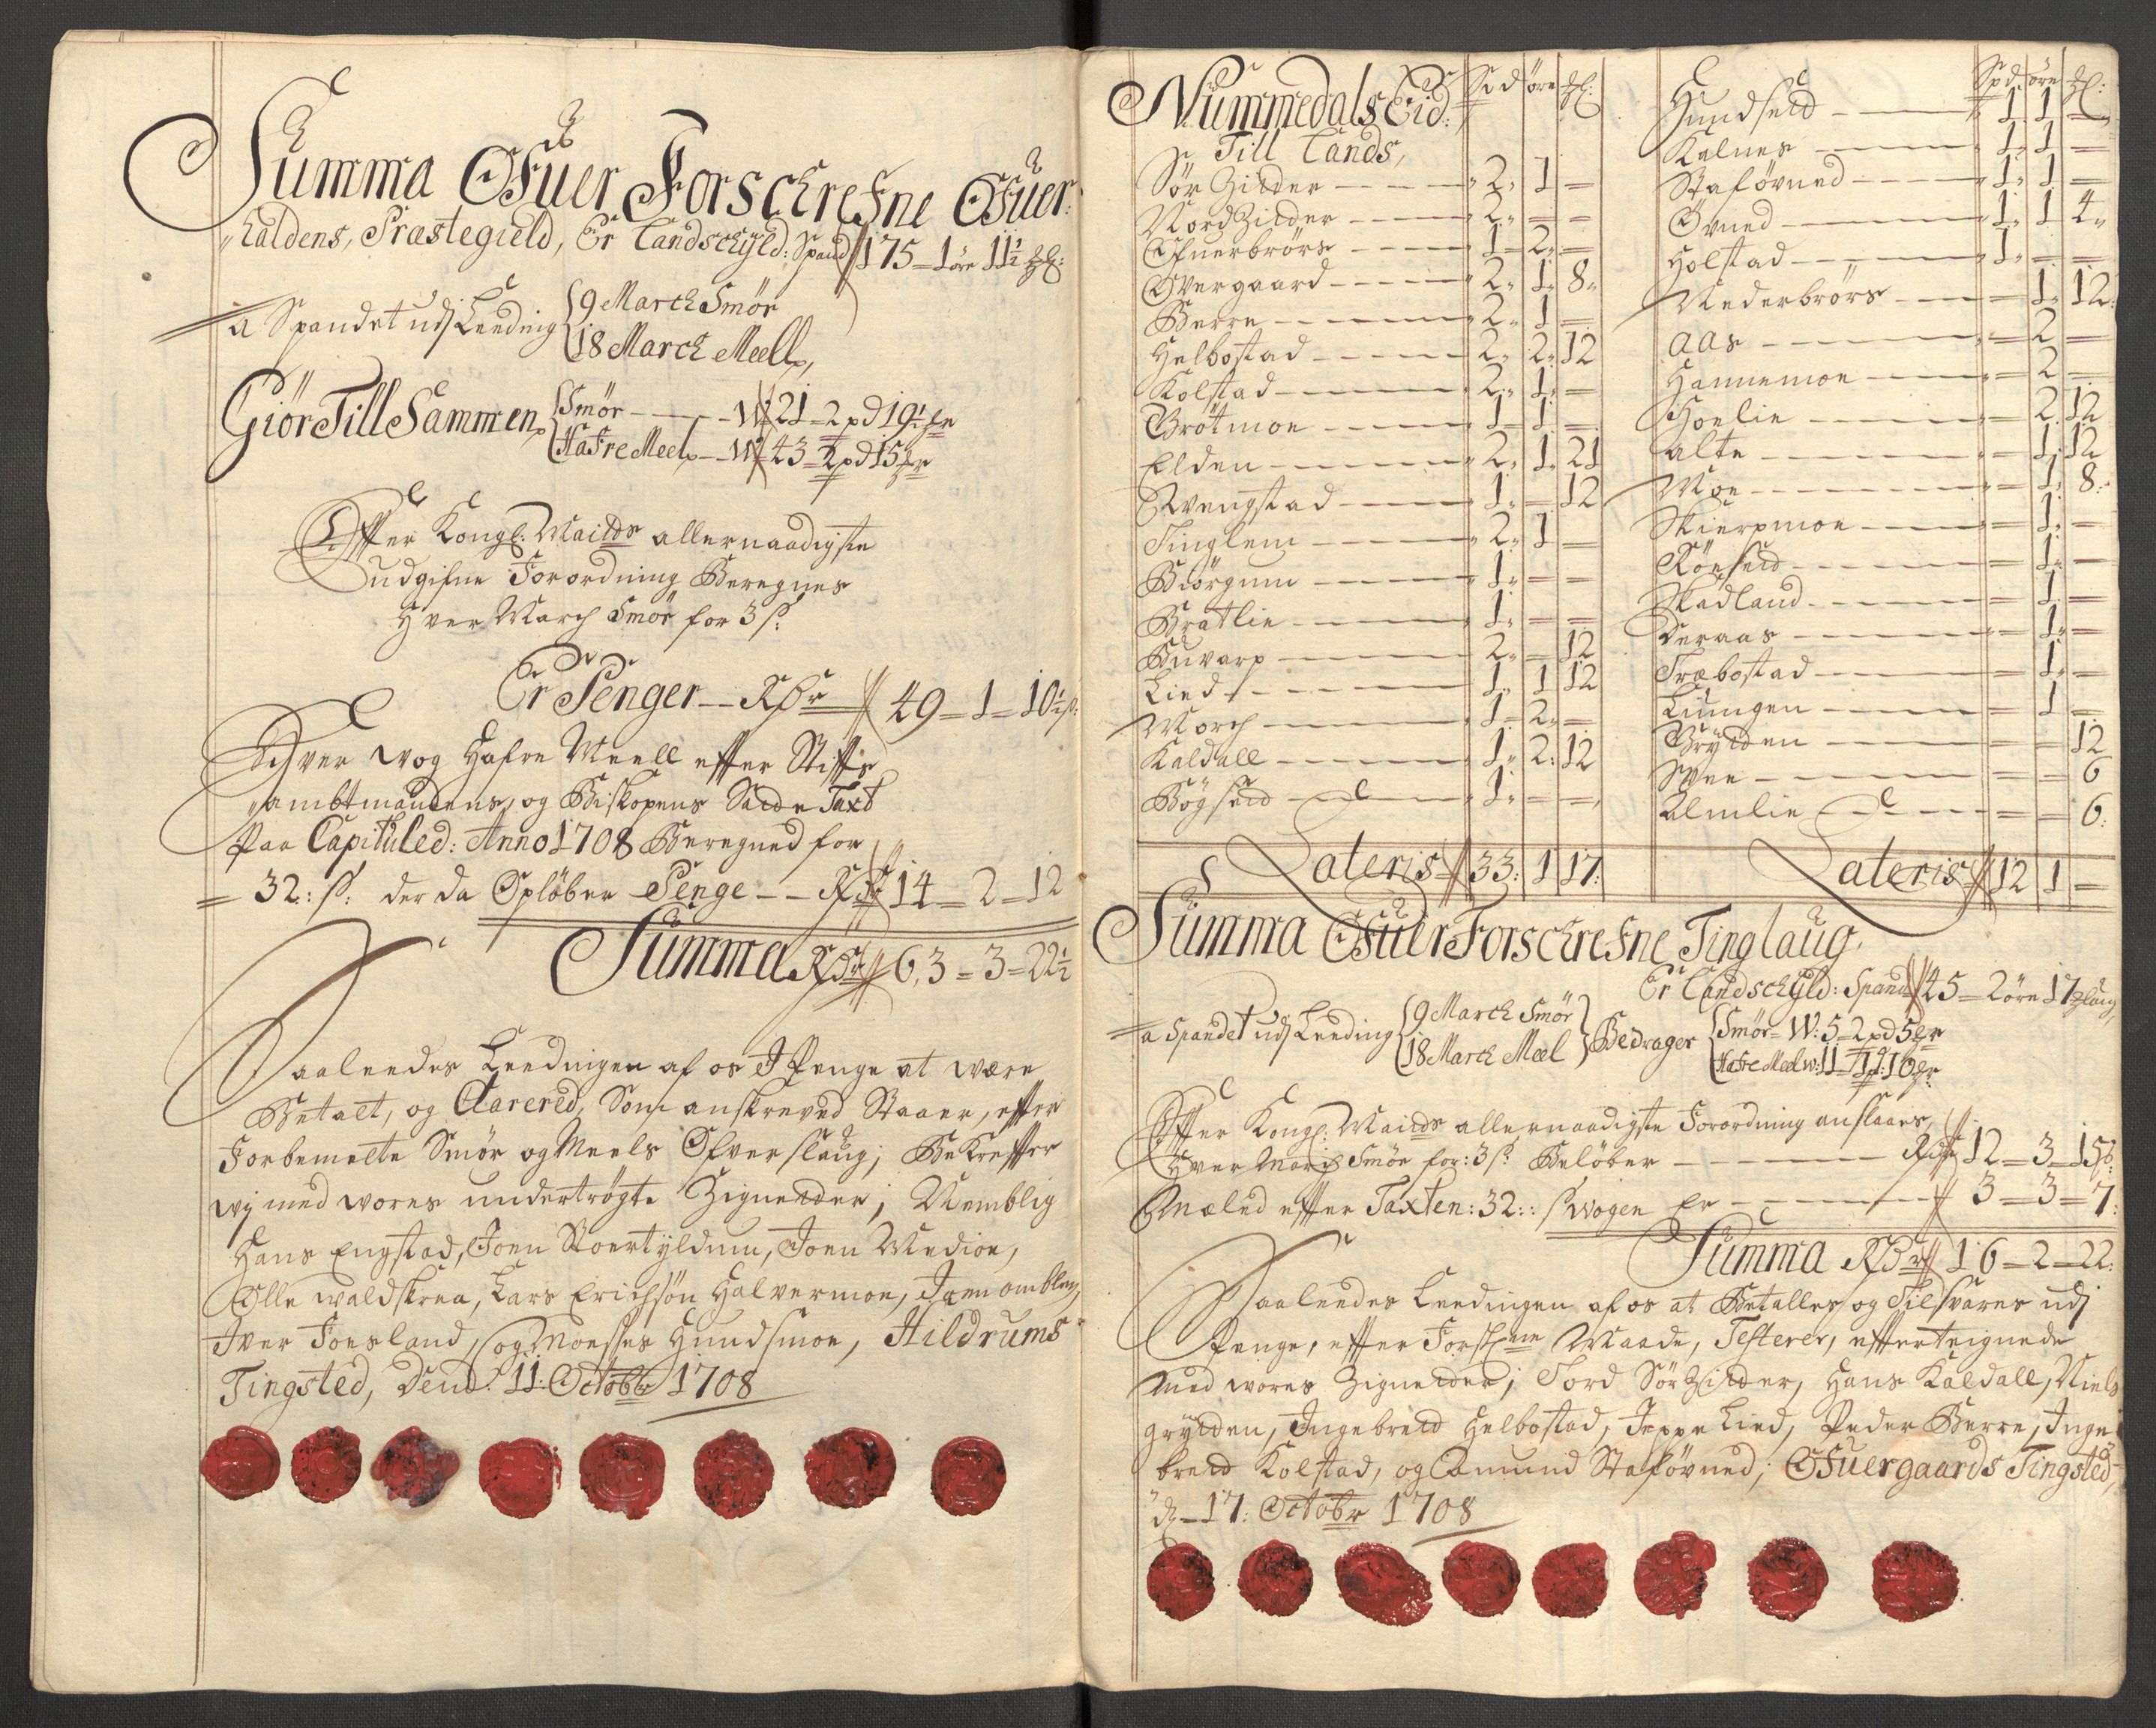 Summa Ofuer Forschrefne Ofuer:
haldens, Præstegield, Er Landschyld: Spand 175 - 1 öre 11½
â Spandet udj Leeding {9 March Smör
{18 March Meell,
Giör Till Sammen {Smör - - - W 21 - 2 pd 19½
{Hafre Meel, - - W 43 - 2 pd 15
Effter Kongl: Maitds allernaadigste
udgifne Forordning Beregnes
hver March Smör for 3 s:
Er Penger - - Rdr 49 - 1 - 10½ s:
hver wog hafre Meell effter Stiffts
ambtmandens, og Biskopens Satte Taxt
Paa Capituled: Anno 1708 Beregned for
= 32: s: der da Opløber Penge - - Rdr 14 - 2 - 12
Summa Rdr 63 = 3 = 22½
Saaleedes Leedingen af os J Penge at være
Betalt, og Clarered, Som anskreved Staaer, effter
Forbemelte Smör og Meels Ofverslaug; Bekreffter
wj med worres undertrögte Zigneder; Nemblig
Hans Engstad, Joen Stoertyldum, Joen Medion,
Olle waldskraa, Lars Erichsön Halvermoe,
Iver Joesland, og Moesses Hundsmoe, Hildrums
Tingsted, Dend: 11: Octobr 1708
Nummedals Eid: Spd öre
Till Lands,
Sör Zidder - - - 2 1 =
Nord Zidder - - - 2 = =
Ofuerbrörs - - - 1 2 =
Ofvergaard - - - 2 1 8
Berre - - - 2 1 =
Helbostad - - - 2 2 12
Kolstad - - - 2 1 =
Brötmoe - - - 1 1 =
Elden - - - 2 1 21
Svengstad - - - 1 = 12
Tinglem - - - 2 1 =
Biörgum - - - 1 = =
Bratlie - - - 1 = =
Buvarp - - - 2 = 12
Lied - - - 1 1 12
Morch - - - 1 2 =
Kaldall - - - 1 2 12
Bögseid - - - 1 = =
Lateris 33: 1 17:
Spd öre
Hundseid - - - 1 1 =
Kalnes - - - 1 1 =
Stafövned - - - 1 1 =
Övned - - - 1 1 4
Holstad - - - 1 = =
Nederbrörs - - - = 1 12
Aas - - - = 2 =
Hannemoe - - - = 2 =
Hoelie - - - = 2 12
Alte - - - = 1 12
Moe - - - = 1 8
Skierpmoe - - - = 1 =
Rönseid - - - = 1 =
Skadland - - - = 1 =
Deraas - - - = 1 =
Træbostad - - - = 1 =
Liungen - - - = 1 =
Grydden - - - = = 12
Svee - - - = = 6
Almlie - - - = = 6:
Lateris 12 1 =
Summa Ofuer Forschrefne Tinglaug,
Er Landschyld: Spand 45 = 2 öre 17
â Spandet udj Leeding {9 March Smör
18 March Meel} Bedrager {Smör - W: 5 - 2 pd 5
{Hafre Meel w: 11 - 1 pd: 10
Effter Kongl: Maitds allernaadigste Forordning anslaaes,
Hver March Smör for: 3 s: Belöber - - - Rdr 12 - 3 - 15
Meeled effter Taxten: 32: s wogen Er - - - 3 = 3 = 7:
Summa Rdr 16 - 2 - 22:
Saaleedes Leedingen af os at Betalles og Tilsvares udj
Penge, effter Maade, Testerer, effterteignede
med worres Zigneder; Tord Sör Zidder, Hans Kaldall, Niels
Grydden, Ingebreid Helbostad, Jeppe Lied, Peder Berre, Inge
breid Kolstad, og Amund Stafövned; Ofuergaards Tingsted,
d: 17: Octobr 1708